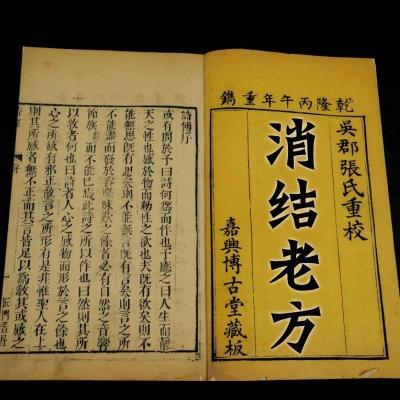 乾隆丙午年重鐫
吳郡張氏重校
消结老方
嘉興博古堂藏板
詩傳序
或有問於予曰詩何為而作也予應之曰人生而靜
天之性也感於物而動性之欲也夫既有欲矣則不
能無思既有思矣則不能無言既有言矣則言之所
不能盡而發於咨嗟咏歎之餘者必有自然之音響
節族而不能已焉此詩之所以作也曰然則其所
以教者何也曰詩者人心之感物而形於言之餘也
心之所感有邪正故言之所形有是非惟聖人在上
則其所感者無不正而其言皆足以為教其或感之